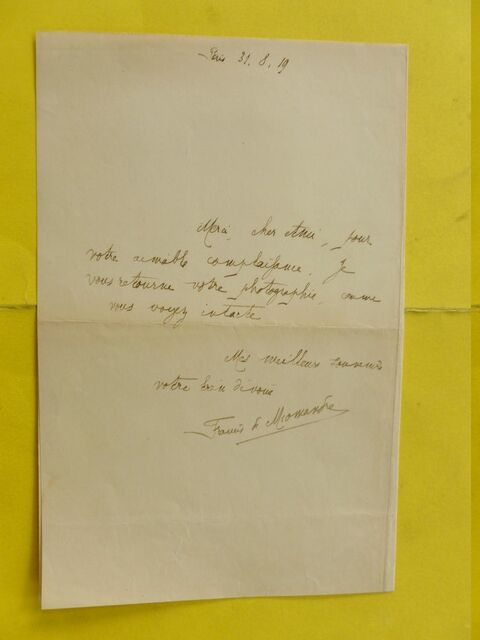 Paris 31. 8. 19
Merci, cher Ami, pour
votre aimable complaisance. Je
vous retourne votre photographie, comme
vous voyez intacte
Mes meilleurs souvenirs
votre bien dévoué
Francis de Miomandre